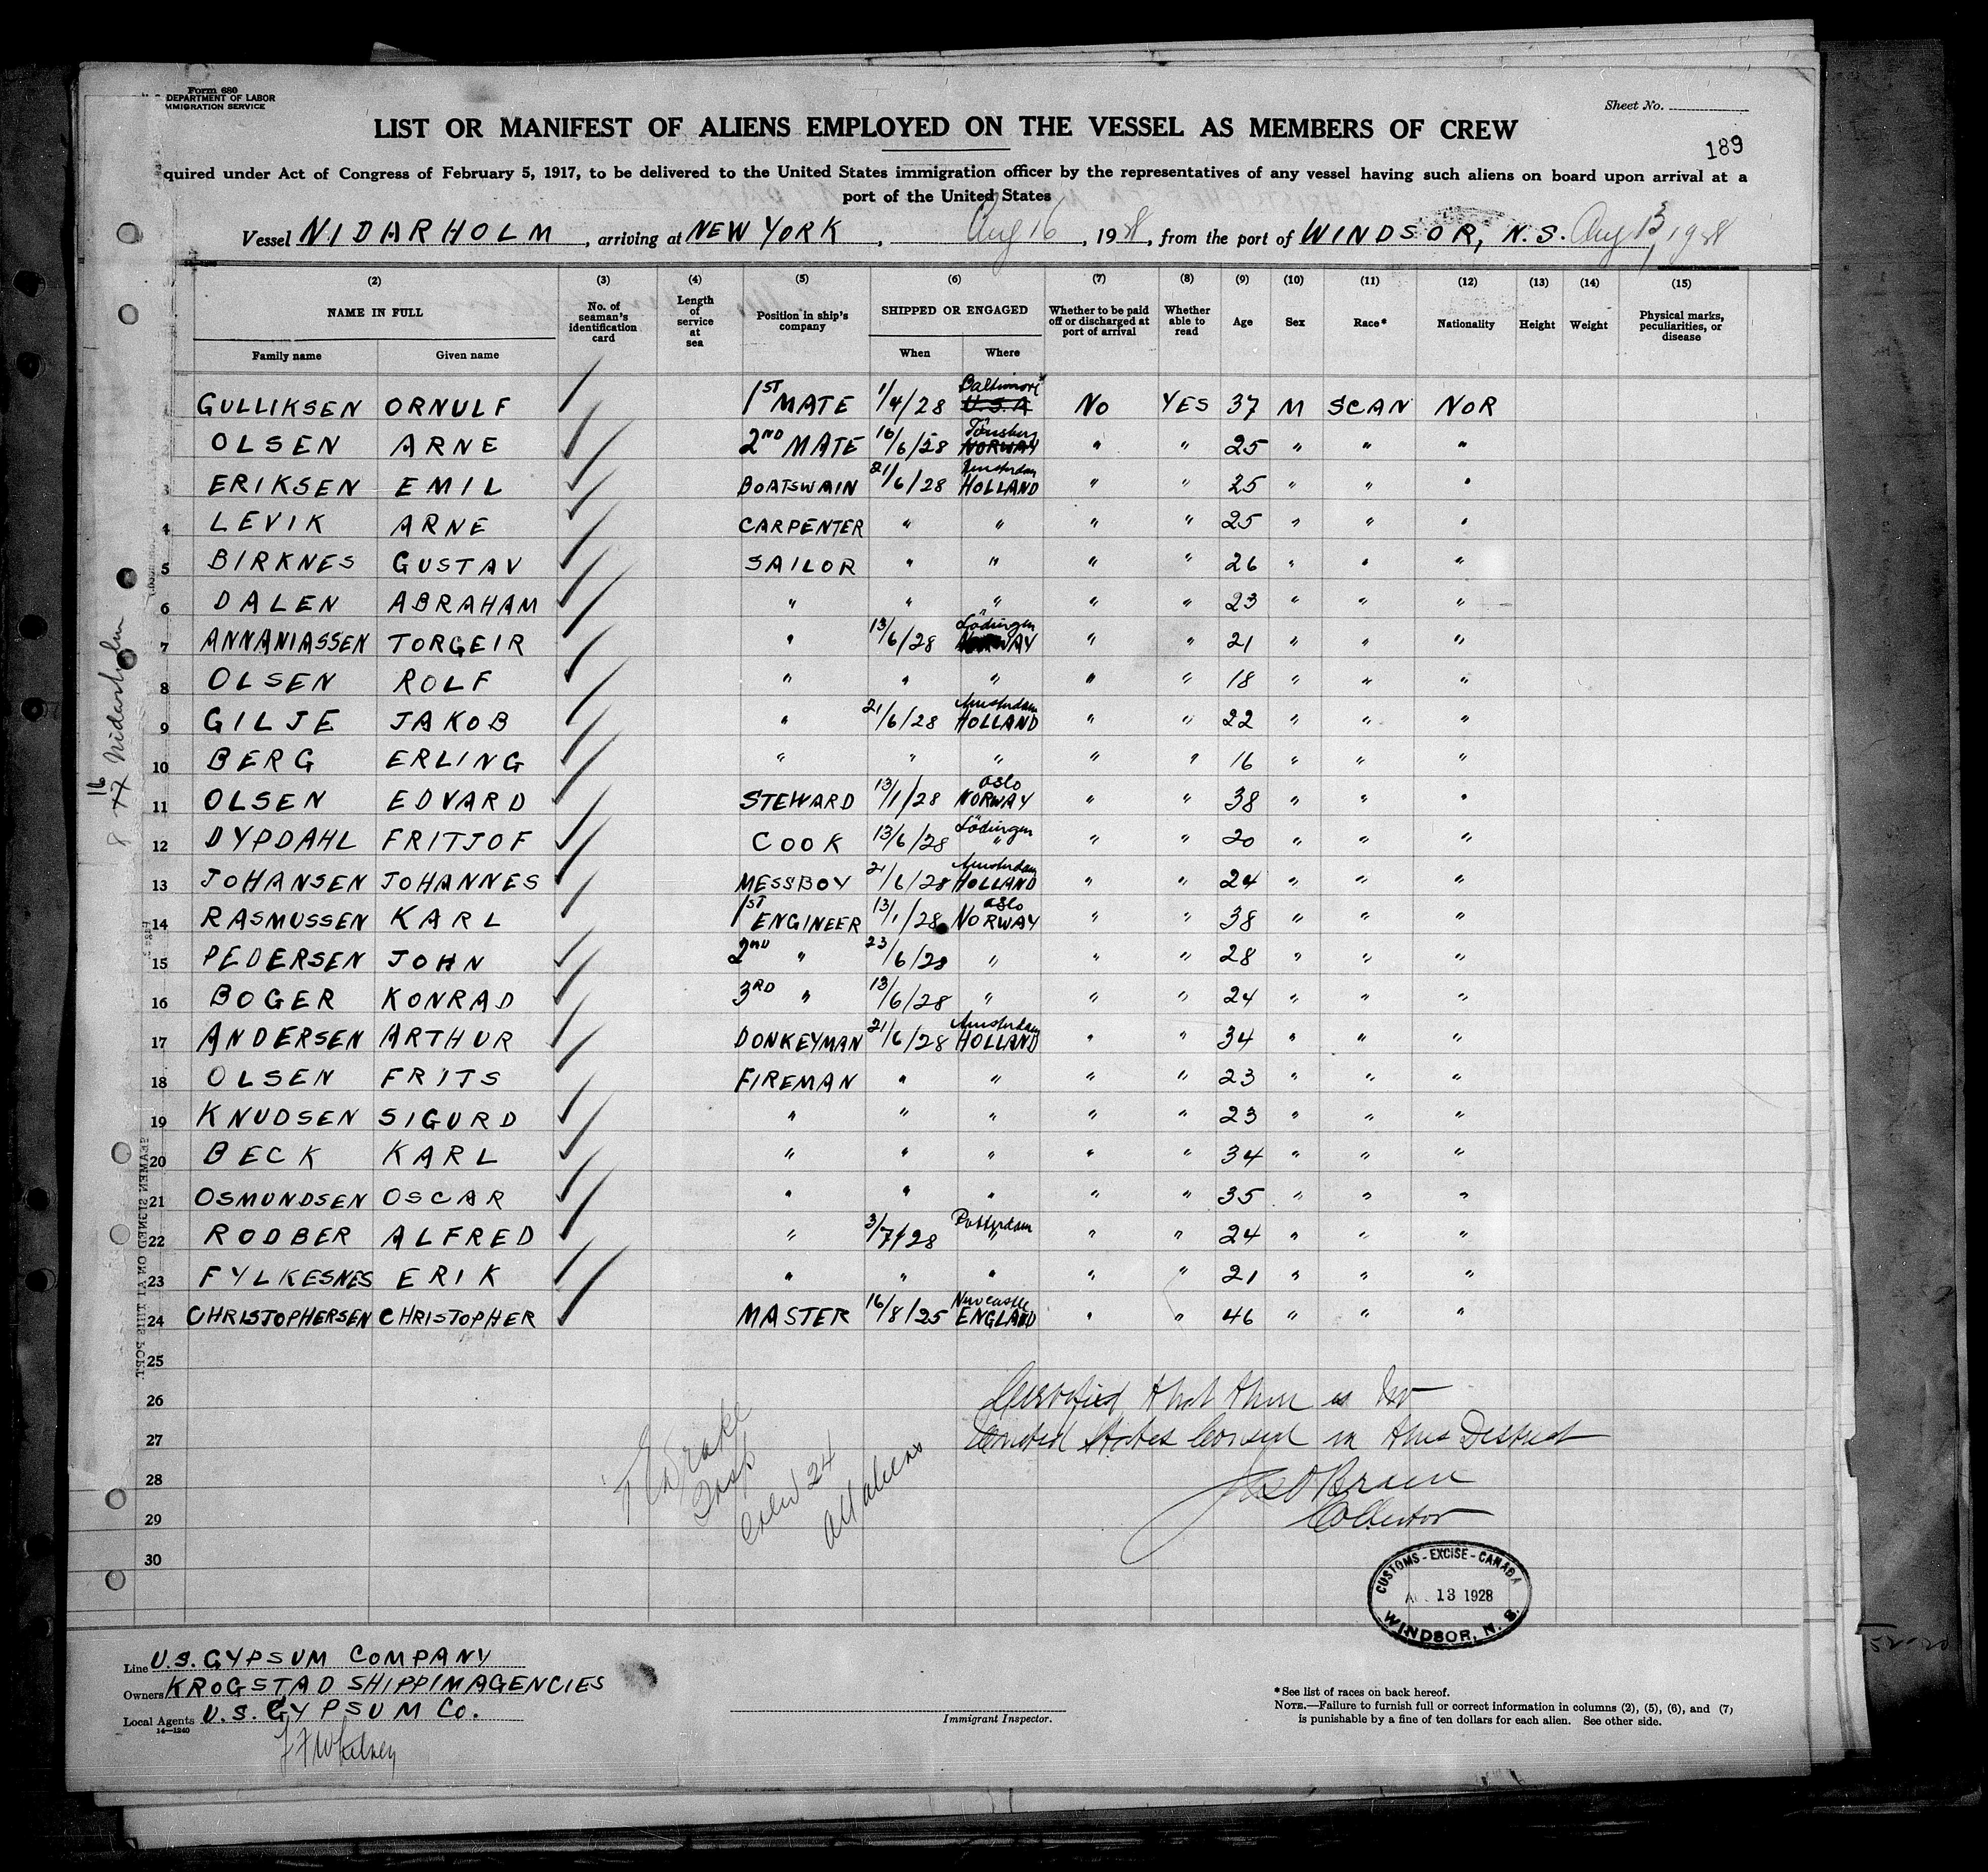 Form 680
DEPARTMENT OF LABOR
IMMIGRATION SERVICE
Sheet No.
LIST OR MANIFEST OF ALIENS EMPLOYED ON THE VESSEL AS MEMBERS OF CREW
189
quired under Act of Congress of February 5, 1917, to be delivered to the United States immigration officer by the representatives of any vessel having such aliens on board upon arrival at a
port of the United States
Vessel NIDARHOLM, arriving at NEW YORK, Aug 16, 1928, from the port of WINDSOR, N.S. Aug 13, 1928
(2) (3) (4) (5) (6) (7) (8) (9) (10) (11) (12) (13) (14) (15)
NAME IN FULL No. of seaman's identification card Length of service at sea Position in ship's company SHIPPED OR ENGAGED Whether to be paid off or discharged at port of arrival Whether able to read Age Sex Race* Nationality Height Weight Physical marks, peculiarities, or disease
Family name Given name When Where
1 GULLIKSEN ORNULF 1ST MATE 1/4/28 Baltimore U.S.A NO YES 37 M SCAN NOR
2 OLSEN ARNE 2ND MATE 16/6/28 Tönsberg NORWAY " " 25 " " "
3 ERIKSEN EMIL BOATSWAIN 21/6/28 Amsterdam HOLLAND " " 25 " " "
4 LEVIK ARNE CARPENTER " " " " 25 " " "
5 BIRKNES GUSTAV SAILOR " " " " 26 " " "
6 DALEN ABRAHAM " " " " " 23 " " "
7 ANNANIASSEN TORGEIR " 13/6/28 Lödingen NORWAY " " 21 " " "
8 OLSEN ROLF " " " " " 18 " " "
9 GILJE JAKOB " 21/6/28 Amsterdam HOLLAND " " 22 " " "
10 BERG ERLING " " " " " 16 " " "
11 OLSEN EDVARD STEWARD 13/1/28 Oslo NORWAY " " 38 " " "
12 DYPDAHL FRITJOF COOK 13/6/28 Lödingen " " " 20 " " "
13 JOHANSEN JOHANNES MESSBOY 21/6/28 Amsterdam HOLLAND " " 24 " " "
14 RASMUSSEN KARL 1ST ENGINEER 13/1/28 Oslo NORWAY " " 38 " " "
15 PEDERSEN JOHN 2ND " 23/6/28 " " " 28 " " "
16 BOGER KONRAD 3RD " 13/6/28 " " " 24 " " "
17 ANDERSEN ARTHUR DONKEYMAN 21/6/28 Amsterdam HOLLAND " " 34 " " "
18 OLSEN FRITS FIREMAN " " " " 23 " " "
19 KNUDSEN SIGURD " " " " " 23 " " "
20 BECK KARL " " " " " 34 " " "
21 OSMUNDSEN OSCAR " " " " " 35 " " "
22 RODBER ALFRED " 3/7/28 Rotterdam " " " 24 " " "
23 FYLKESNES ERIK " " " " " 21 " " "
24 CHRISTOPHERSEN CHRISTOPHER MASTER 16/8/25 Newcastle ENGLAND " " 46 " " "
25
26
27
28
29
30
Certified that there is no
United States Consul in this District
Collector
Drake
Insp
Crew 24
all aliens
CUSTOMS - EXCISE - CANADA
13 1928
WINDSOR, N. S.
Line U.S. GYPSUM COMPANY
Owners KROGSTAD SHIPPIMAGENCIES
Local Agents U.S. GYPSUM CO.
14—1240
Immigrant Inspector.
*See list of races on back hereof.
NOTE.—Failure to furnish full or correct information in columns (2), (5), (6), and (7)
is punishable by a fine of ten dollars for each alien. See other side.
Nidarholm
16
SEAMEN SIGNED ON AT THIS PORT.